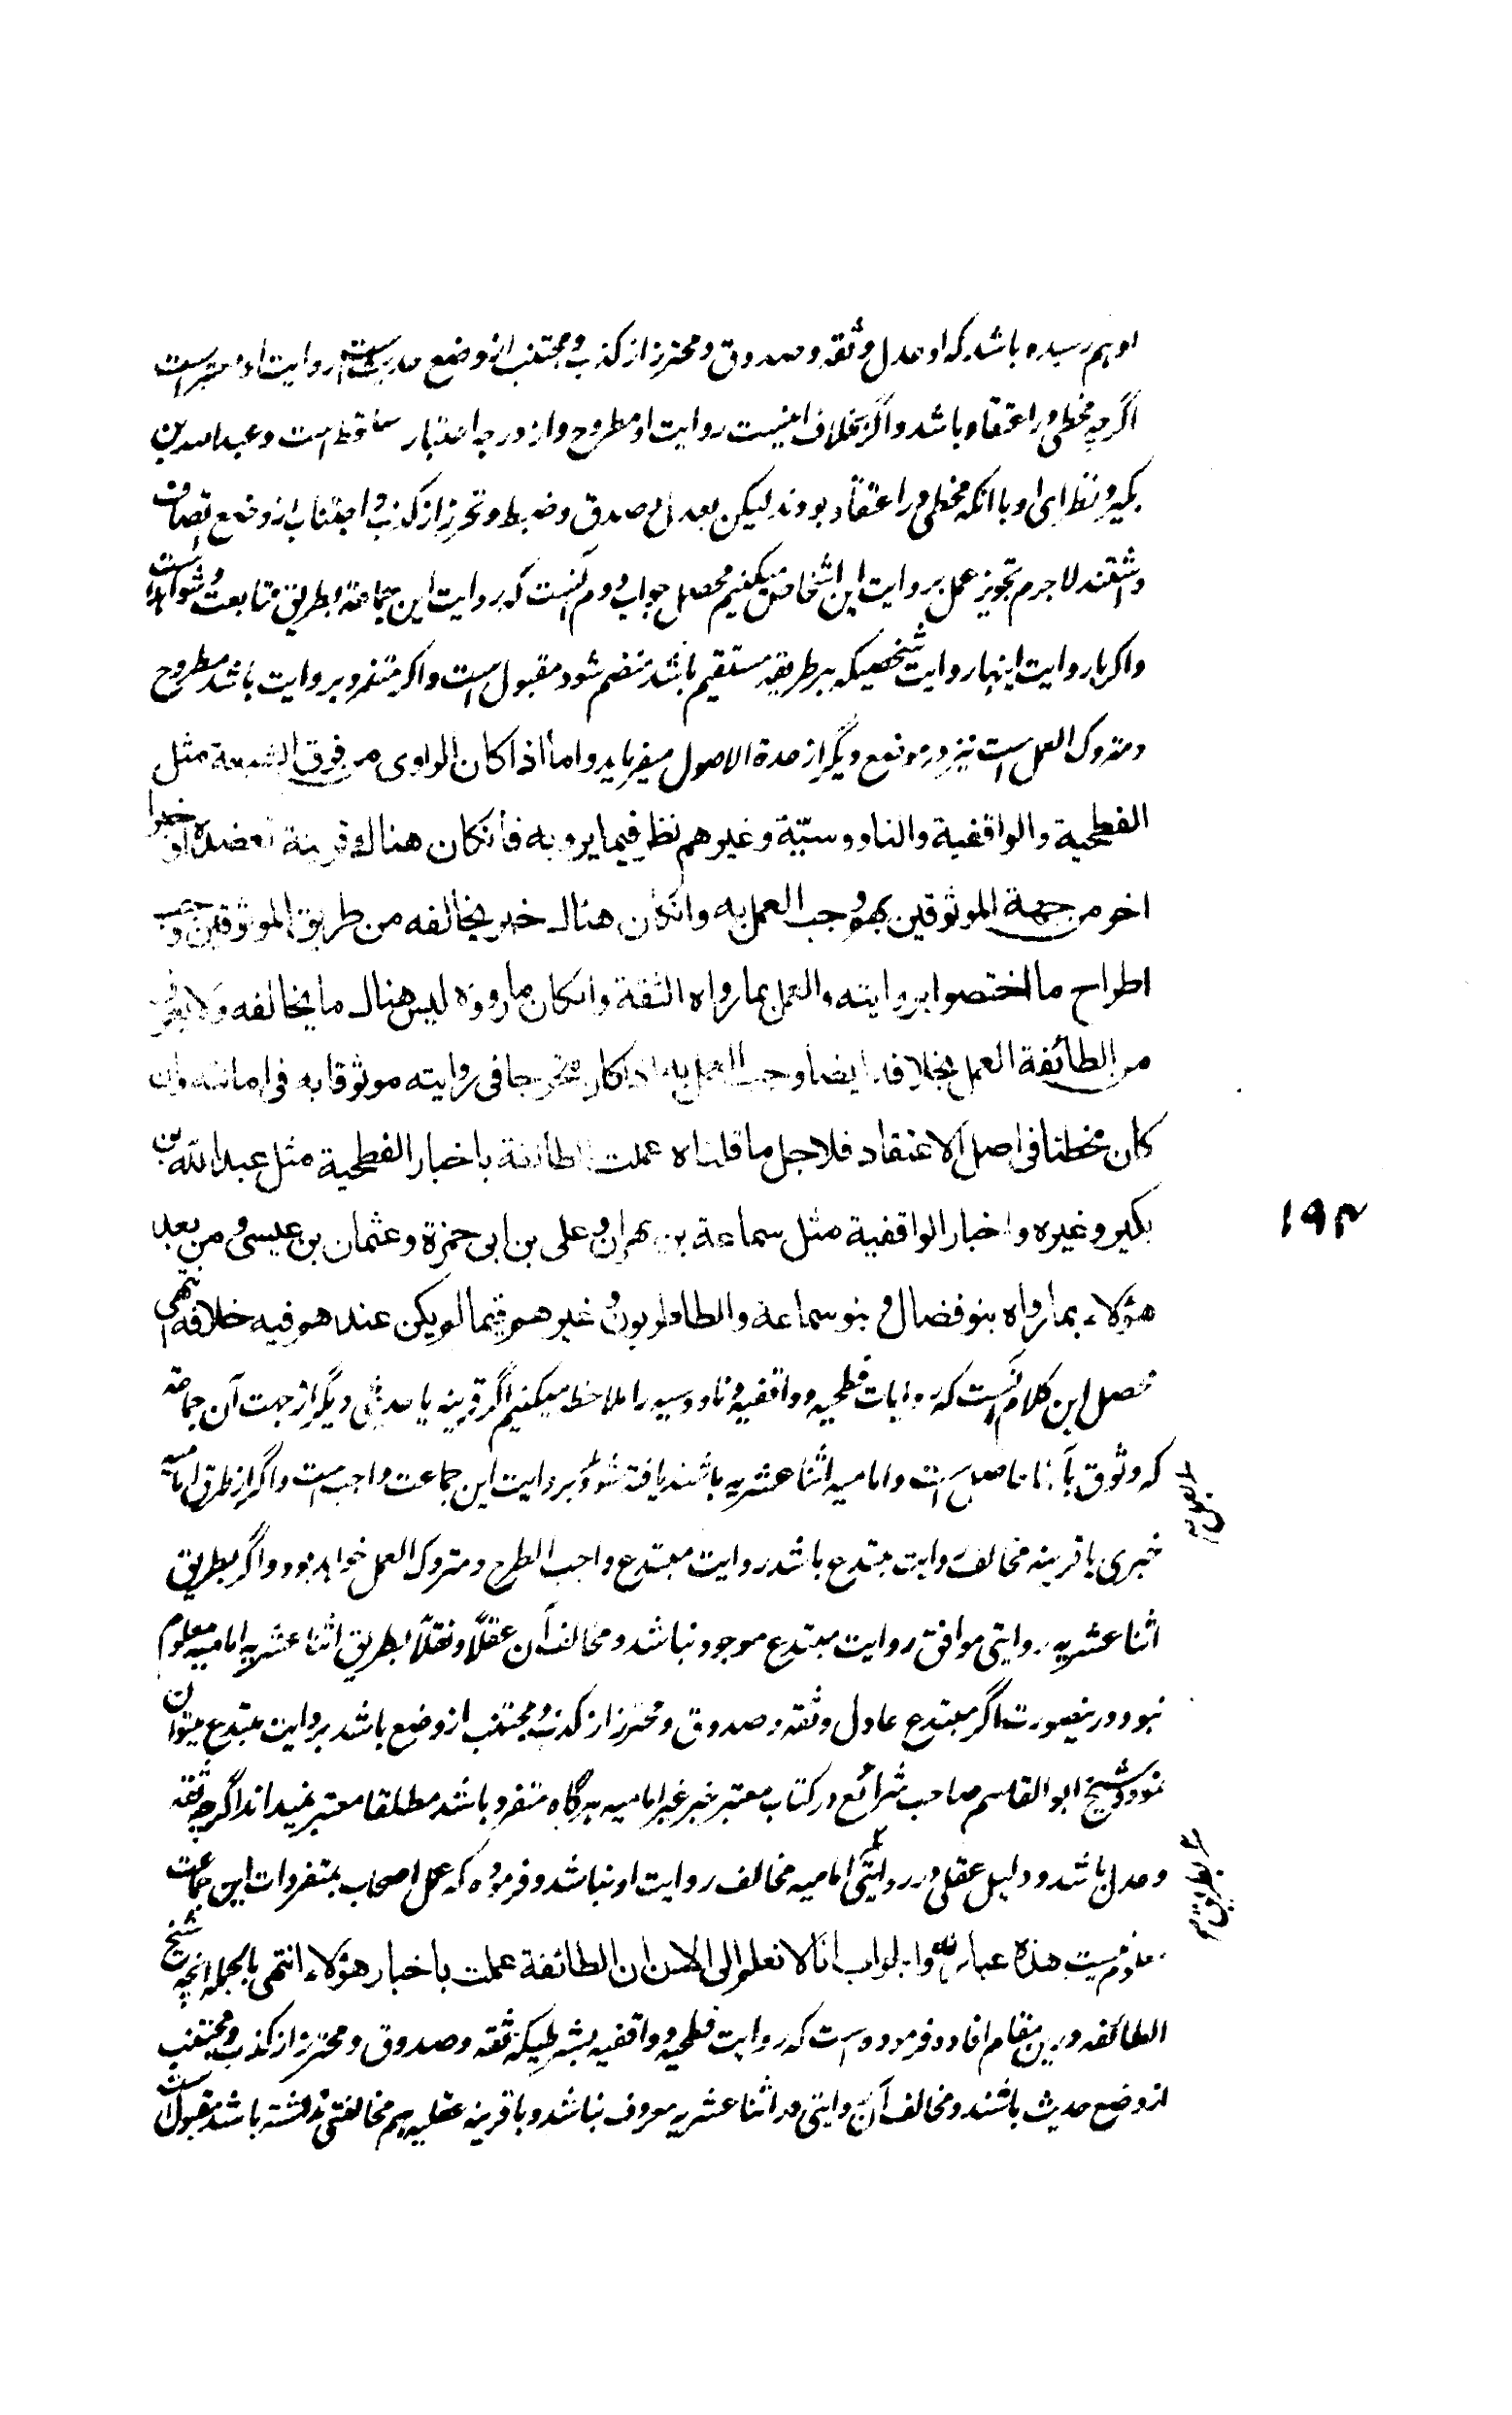 او بهم رسیده باشد که او عدل و ثقه و صدوق و محترز از کذب و مجتنب از وضع حدیث است روایت او معتبر است
اگرچه مخطی در اعتقاد باشد و اگر بخلاف اینست روایت او مطروح و از درجه اعتبار ساقط است و عبدالله بن
بکیر و نظرای او با انکه مخطی در اعتقاد بودند لیکن بعدل و صدق و ضبط و تحرز از کذب و اجتناب از وضع اتصاف
داشتند لاجرم تجویز عمل بر روایت این اشخاص میکنیم محصل جواب دوم آنست که روایت این جماعة بطریق متابعت و شواهد است
و اکر با روایت اینها روایت شخصیکه بر طریقه مستقیم باشد منضم شود مقبول است و اکر متفرد بروایت باشد مطروح
و متروک العمل است نیز در موضع دیگر از عدة الاصول میفرماید و اما اذا کان الراوی من فرق الشیعة مثل
الفطحیة والواقفیة والناووسیّة وغیرهم نظر فیما یرویه فانکان هناك قرینة تعضده او خبرا
اخر من جهة الموثوقین بهم وجب العمل به وانکان هناك خبر یخالفه من طریق الموثوقین وجب
اطراح ما اختصوا بروایته والعمل بما رواه الثقة وانکان ما رووه لیس هناك ما یخالفه ولا یعرف
من الطائفة العمل بخلافه ایضا وجب العمل به اذا کان متحرجا فی روایته موثوقا به فی امانته وان
کان مخطئا فی اصل الاعتقاد فلاجل ما قلناه عملت الطائفة باخبار الفطحیة مثل عبدالله بن
بکیر وغیره واخبار الواقفیة مثل سماعة بن مهران وعلی بن ابی حمزة وعثمان بن عیسی ومن بعد
هؤلاء بما رواه بنو فضال و بنو سماعة والطاطریون و غیرهم فیما لم یکن عندهم فیه خلافه انتهی
محصل این کلام آنست که روایات فطحیه و واقفیه و ناووسیه را ملاحظه میکنیم اگر قرینه یا حدیثی دیگر از جهت آن جماعة
که وثوق بآنها حاصل است و امامیه اثنا عشریه باشند یافته شود عمل بروایت این جماعت واجب است و اگر از طرق امامیه
خبری یا قرینه مخالف روایت مبتدع باشد روایت مبتدع واجب الطرح و متروک العمل خواهد بود و اگر بطریق
اثنا عشریه روایتی موافق روایت مبتدع موجود نباشد و مخالف آن عقلاً و نقلاً بطریق اثنا عشریه امامیه معلوم
نبود درینصورت اگر مبتدع عادل و ثقه و صدوق و محترز از کذب و مجتنب از وضع باشد بروایت مبتدع عمل میتوان
نمود و شیخ ابوالقاسم صاحب شرائع در کتاب معتبر خبر غیر امامیه هرگاه متفرد باشد مطلقا معتبر نمیداند اگرچه ثقه
و عدل باشد و دلیل عقلی و روایتی امامیه مخالف روایت او نباشد و فرموده که عمل اصحاب بمتفردات این جماعت
معلوم نیست هذه عبارته والجواب انا لا نعلم الی الان ان الطائفة عملت باخبار هؤلاء انتهی بالجمله انچه شیخ
الطائفه درین مقام افاده فرموده است که روایت فطحیه و واقفیه بشرطیکه ثقه و صدوق و محترز از کذب و مجتنب
از وضع حدیث باشند و مخالف آن روایتی در اثنا عشریه معروف نباشد و با قرینه عقلیه هم مخالفتی نداشته باشد مقبول است
۱۹۳